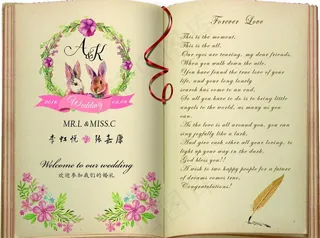 A&K
Wedding
MR.L &MISS.C
李虹悦 张嘉康
Welcome to our wedding
欢迎参加我们的婚礼
Forever Love
This is the moment,
This is the all.
Our eyes are tearing, my dear friends,
When you walk down the aisle.
You have found the true love of your
life, and your long lonely
search has come to an end.
So all you have to do is to bring little
angels to the world, as many as you
can.
As the love is all around you, you can
sing joyfully like a lark,
And give each other all your loving, to
light up your way in the dark.
God bless you!!
A wish to two happy people for a future
of dreams come true.
Congratulations!